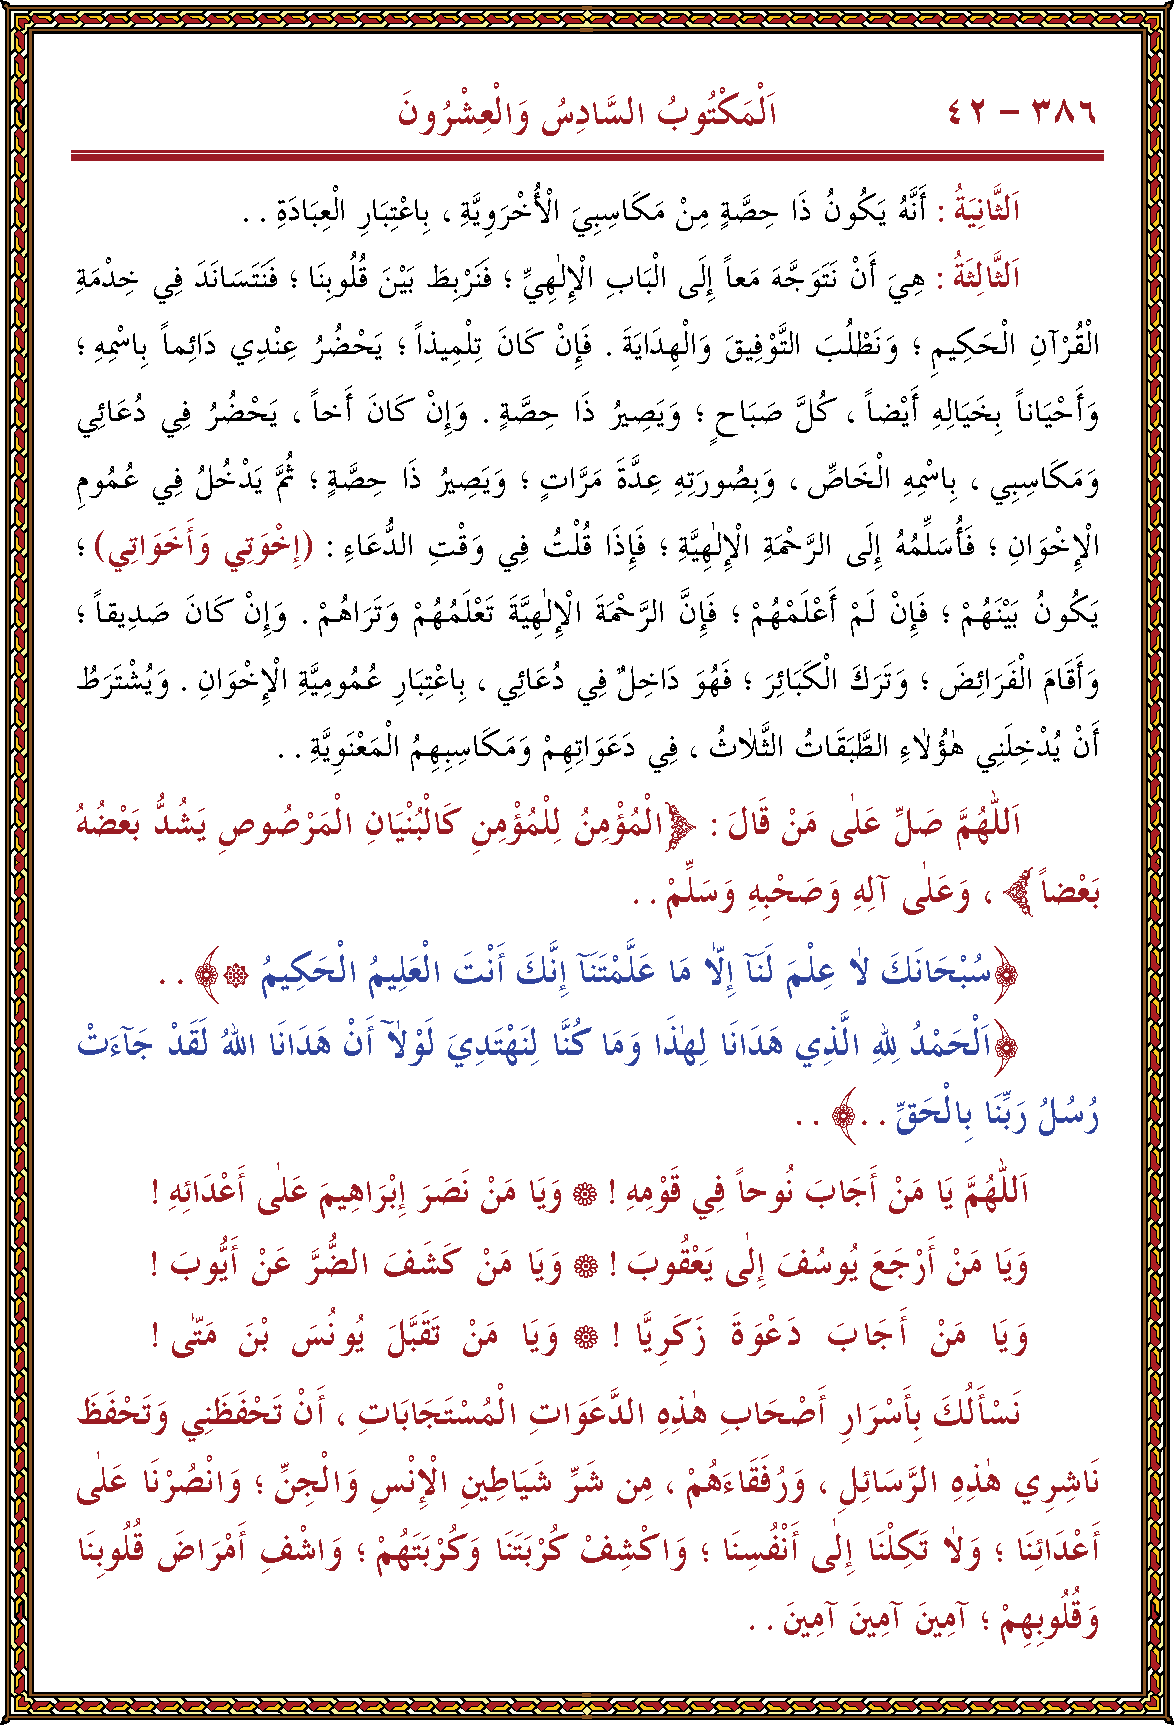 ٣٨٦ – ٤٢
اَلْمَكْتُوبُ السَّادِسُ وَالْعِشْرُونَ
اَلثَّانِيَةُ : أَنَّهُ يَكُونُ ذَا حِصَّةٍ مِنْ مَكَاسِبِيَ الْأُخْرَوِيَّةِ ، بِاعْتِبَارِ الْعِبَادَةِ . .
اَلثَّالِثَةُ : هِيَ أَنْ نَتَوَجَّهَ مَعاً إِلَى الْبَابِ الْإِلٰهِيِّ ؛ فَنَرْبِطَ بَيْنَ قُلُوبِنَا ؛ فَنَتَسَانَدَ فِي خِدْمَةِ
الْقُرْآنِ الْحَكِيمِ ؛ وَنَطْلُبَ التَّوْفِيقَ وَالْهِدَايَةَ . فَإِنْ كَانَ تِلْمِيذاً ؛ يَحْضُرُ عِنْدِي دَائِماً بِاسْمِهِ ؛
وَأَحْيَاناً بِخَيَالِهِ أَيْضاً ، كُلَّ صَبَاحٍ ؛ وَيَصِيرُ ذَا حِصَّةٍ . وَإِنْ كَانَ أَخاً ، يَحْضُرُ فِي دُعَائِي
وَمَكَاسِبِي ، بِاسْمِهِ الْخَاصِّ ، وَبِصُورَتِهِ عِدَّةَ مَرَّاتٍ ؛ وَيَصِيرُ ذَا حِصَّةٍ ؛ ثُمَّ يَدْخُلُ فِي عُمُومِ
الْإِخْوَانِ ؛ فَأُسَلِّمُهُ إِلَى الرَّحْمَةِ الْإِلٰهِيَّةِ ؛ فَإِذَا قُلْتُ فِي وَقْتِ الدُّعَاءِ : (إِخْوَتِي وَأَخَوَاتِي) ؛
يَكُونُ بَيْنَهُمْ ؛ فَإِنْ لَمْ أَعْلَمْهُمْ ؛ فَإِنَّ الرَّحْمَةَ الْإِلٰهِيَّةَ تَعْلَمُهُمْ وَتَرَاهُمْ . وَإِنْ كَانَ صَدِيقاً ؛
وَأَقَامَ الْفَرَائِضَ ؛ وَتَرَكَ الْكَبَائِرَ ؛ فَهُوَ دَاخِلٌ فِي دُعَائِي ، بِاعْتِبَارِ عُمُومِيَّةِ الْإِخْوَانِ . وَيُشْتَرَطُ
أَنْ يُدْخِلَنِي هٰؤُلَاءِ الطَّبَقَاتُ الثَّلَاثُ ، فِي دَعَوَاتِهِمْ وَمَكَاسِبِهِمُ الْمَعْنَوِيَّةِ . .
اَللّٰهُمَّ صَلِّ عَلٰى مَنْ قَالَ : ﴿الْمُؤْمِنُ لِلْمُؤْمِنِ كَالْبُنْيَانِ الْمَرْصُوصِ يَشُدُّ بَعْضُهُ
بَعْضاً﴾ ، وَعَلٰى آلِهِ وَصَحْبِهِ وَسَلِّمْ . .
﴿سُبْحَانَكَ لَا عِلْمَ لَنَآ إِلَّا مَا عَلَّمْتَنَآ إِنَّكَ أَنْتَ الْعَلِيمُ الْحَكِيمُ ۞﴾ . .
﴿اَلْحَمْدُ لِلّٰهِ الَّذِي هَدَانَا لِهٰذَا وَمَا كُنَّا لِنَهْتَدِيَ لَوْلَآ أَنْ هَدَانَا اللهُ لَقَدْ جَآءَتْ
رُسُلُ رَبِّنَا بِالْحَقِّ . .﴾ . .
اَللّٰهُمَّ يَا مَنْ أَجَابَ نُوحاً فِي قَوْمِهِ ! ۞ وَيَا مَنْ نَصَرَ إِبْرَاهِيمَ عَلٰى أَعْدَائِهِ !
وَيَا مَنْ أَرْجَعَ يُوسُفَ إِلٰى يَعْقُوبَ ! ۞ وَيَا مَنْ كَشَفَ الضُّرَّ عَنْ أَيُّوبَ !
وَيَا مَنْ أَجَابَ دَعْوَةَ زَكَرِيَّا ! ۞ وَيَا مَنْ تَقَبَّلَ يُونُسَ بْنَ مَتّٰى !
نَسْأَلُكَ بِأَسْرَارِ أَصْحَابِ هٰذِهِ الدَّعَوَاتِ الْمُسْتَجَابَاتِ ، أَنْ تَحْفَظَنِي وَتَحْفَظَ
نَاشِرِي هٰذِهِ الرَّسَائِلِ ، وَرُفَقَاءَهُمْ ، مِنْ شَرِّ شَيَاطِينِ الْإِنْسِ وَالْجِنِّ ؛ وَانْصُرْنَا عَلٰى
أَعْدَائِنَا ؛ وَلَا تَكِلْنَا إِلٰى أَنْفُسِنَا ؛ وَاكْشِفْ كُرْبَتَنَا وَكُرْبَتَهُمْ ؛ وَاشْفِ أَمْرَاضَ قُلُوبِنَا
وَقُلُوبِهِمْ ؛ آمِينَ آمِينَ آمِينَ . .